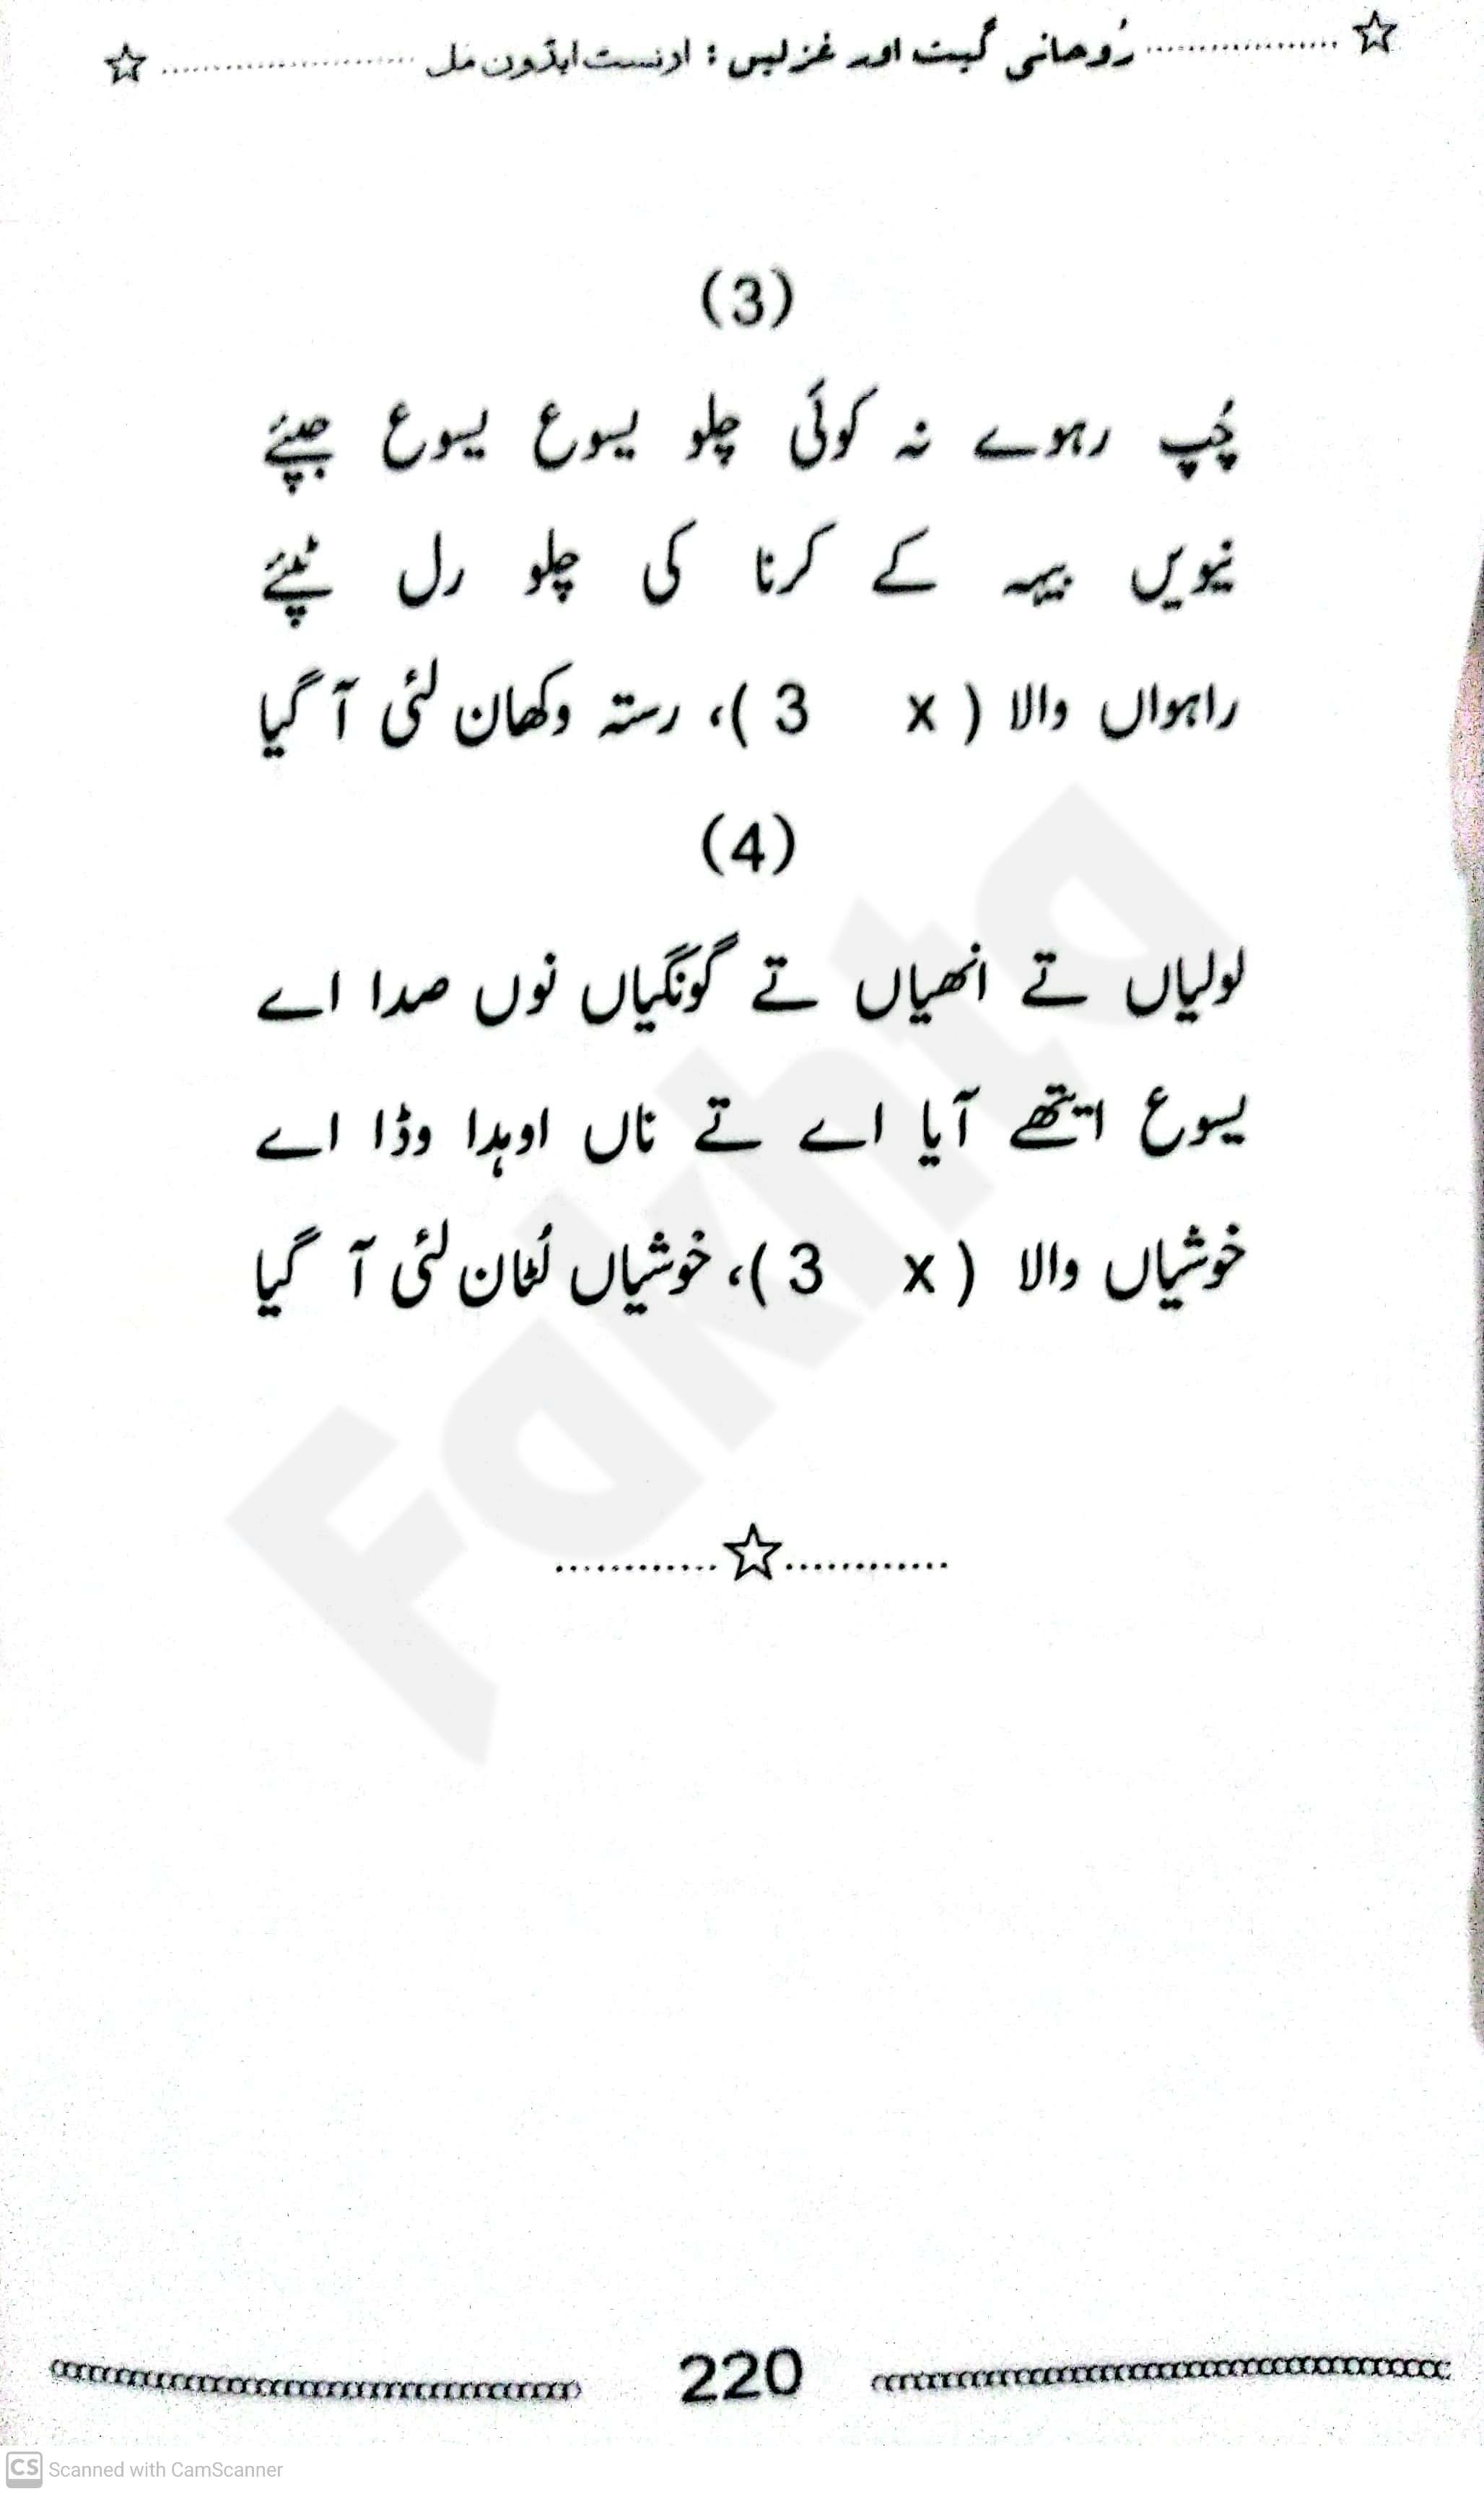 ☆ .................. رُوحانی گیت اور غزلیں : ارنسٹ ایڈون مل .................. ☆
(3)
چُپ رہوے نہ کوئی چلو یسوع یسوع جپیٔے
نیویں بیہہ کے کرنا کی چلو رل ٹپیٔے
راہواں والا ( x 3 )، رستہ وکھان لئی آ گیا
(4)
لولیاں تے انھیاں تے گونگیاں نوں صدا اے
یسوع ایتھے آیا اے تے ناں اوہدا وڈا اے
خوشیاں والا ( x 3 )، خوشیاں لُٹان لئی آ گیا
............☆............
220
Fakhta
CS Scanned with CamScanner